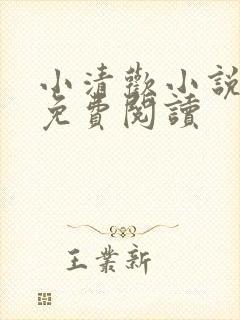 小清歡小說
免費閱讀
王業新